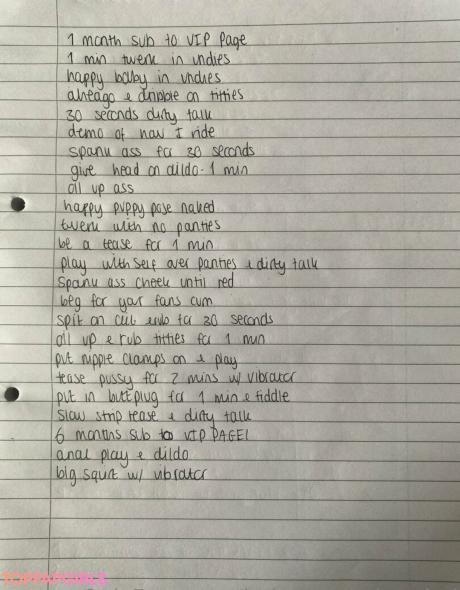 1 month sub to VIP Page
1 min twerk in undies
happy baby in undies
aheago & dribble on titties
30 seconds dirty talk
demo of how I ride
spank ass for 30 seconds
give head on dildo - 1 min
oil up ass
happy puppy pose naked
twerk with no panties
be a tease for 1 min
play with self over panties & dirty talk
spank ass cheek until red
beg for your fans cum
spit on clit & rub for 30 seconds
oil up & rub titties for 1 min
put nipple clamps on & play
tease pussy for 2 mins w/ vibrator
put in buttplug for 1 min & fiddle
slow strip tease & dirty talk
6 months sub to VIP PAGE!
anal play & dildo
big squirt w/ vibrator